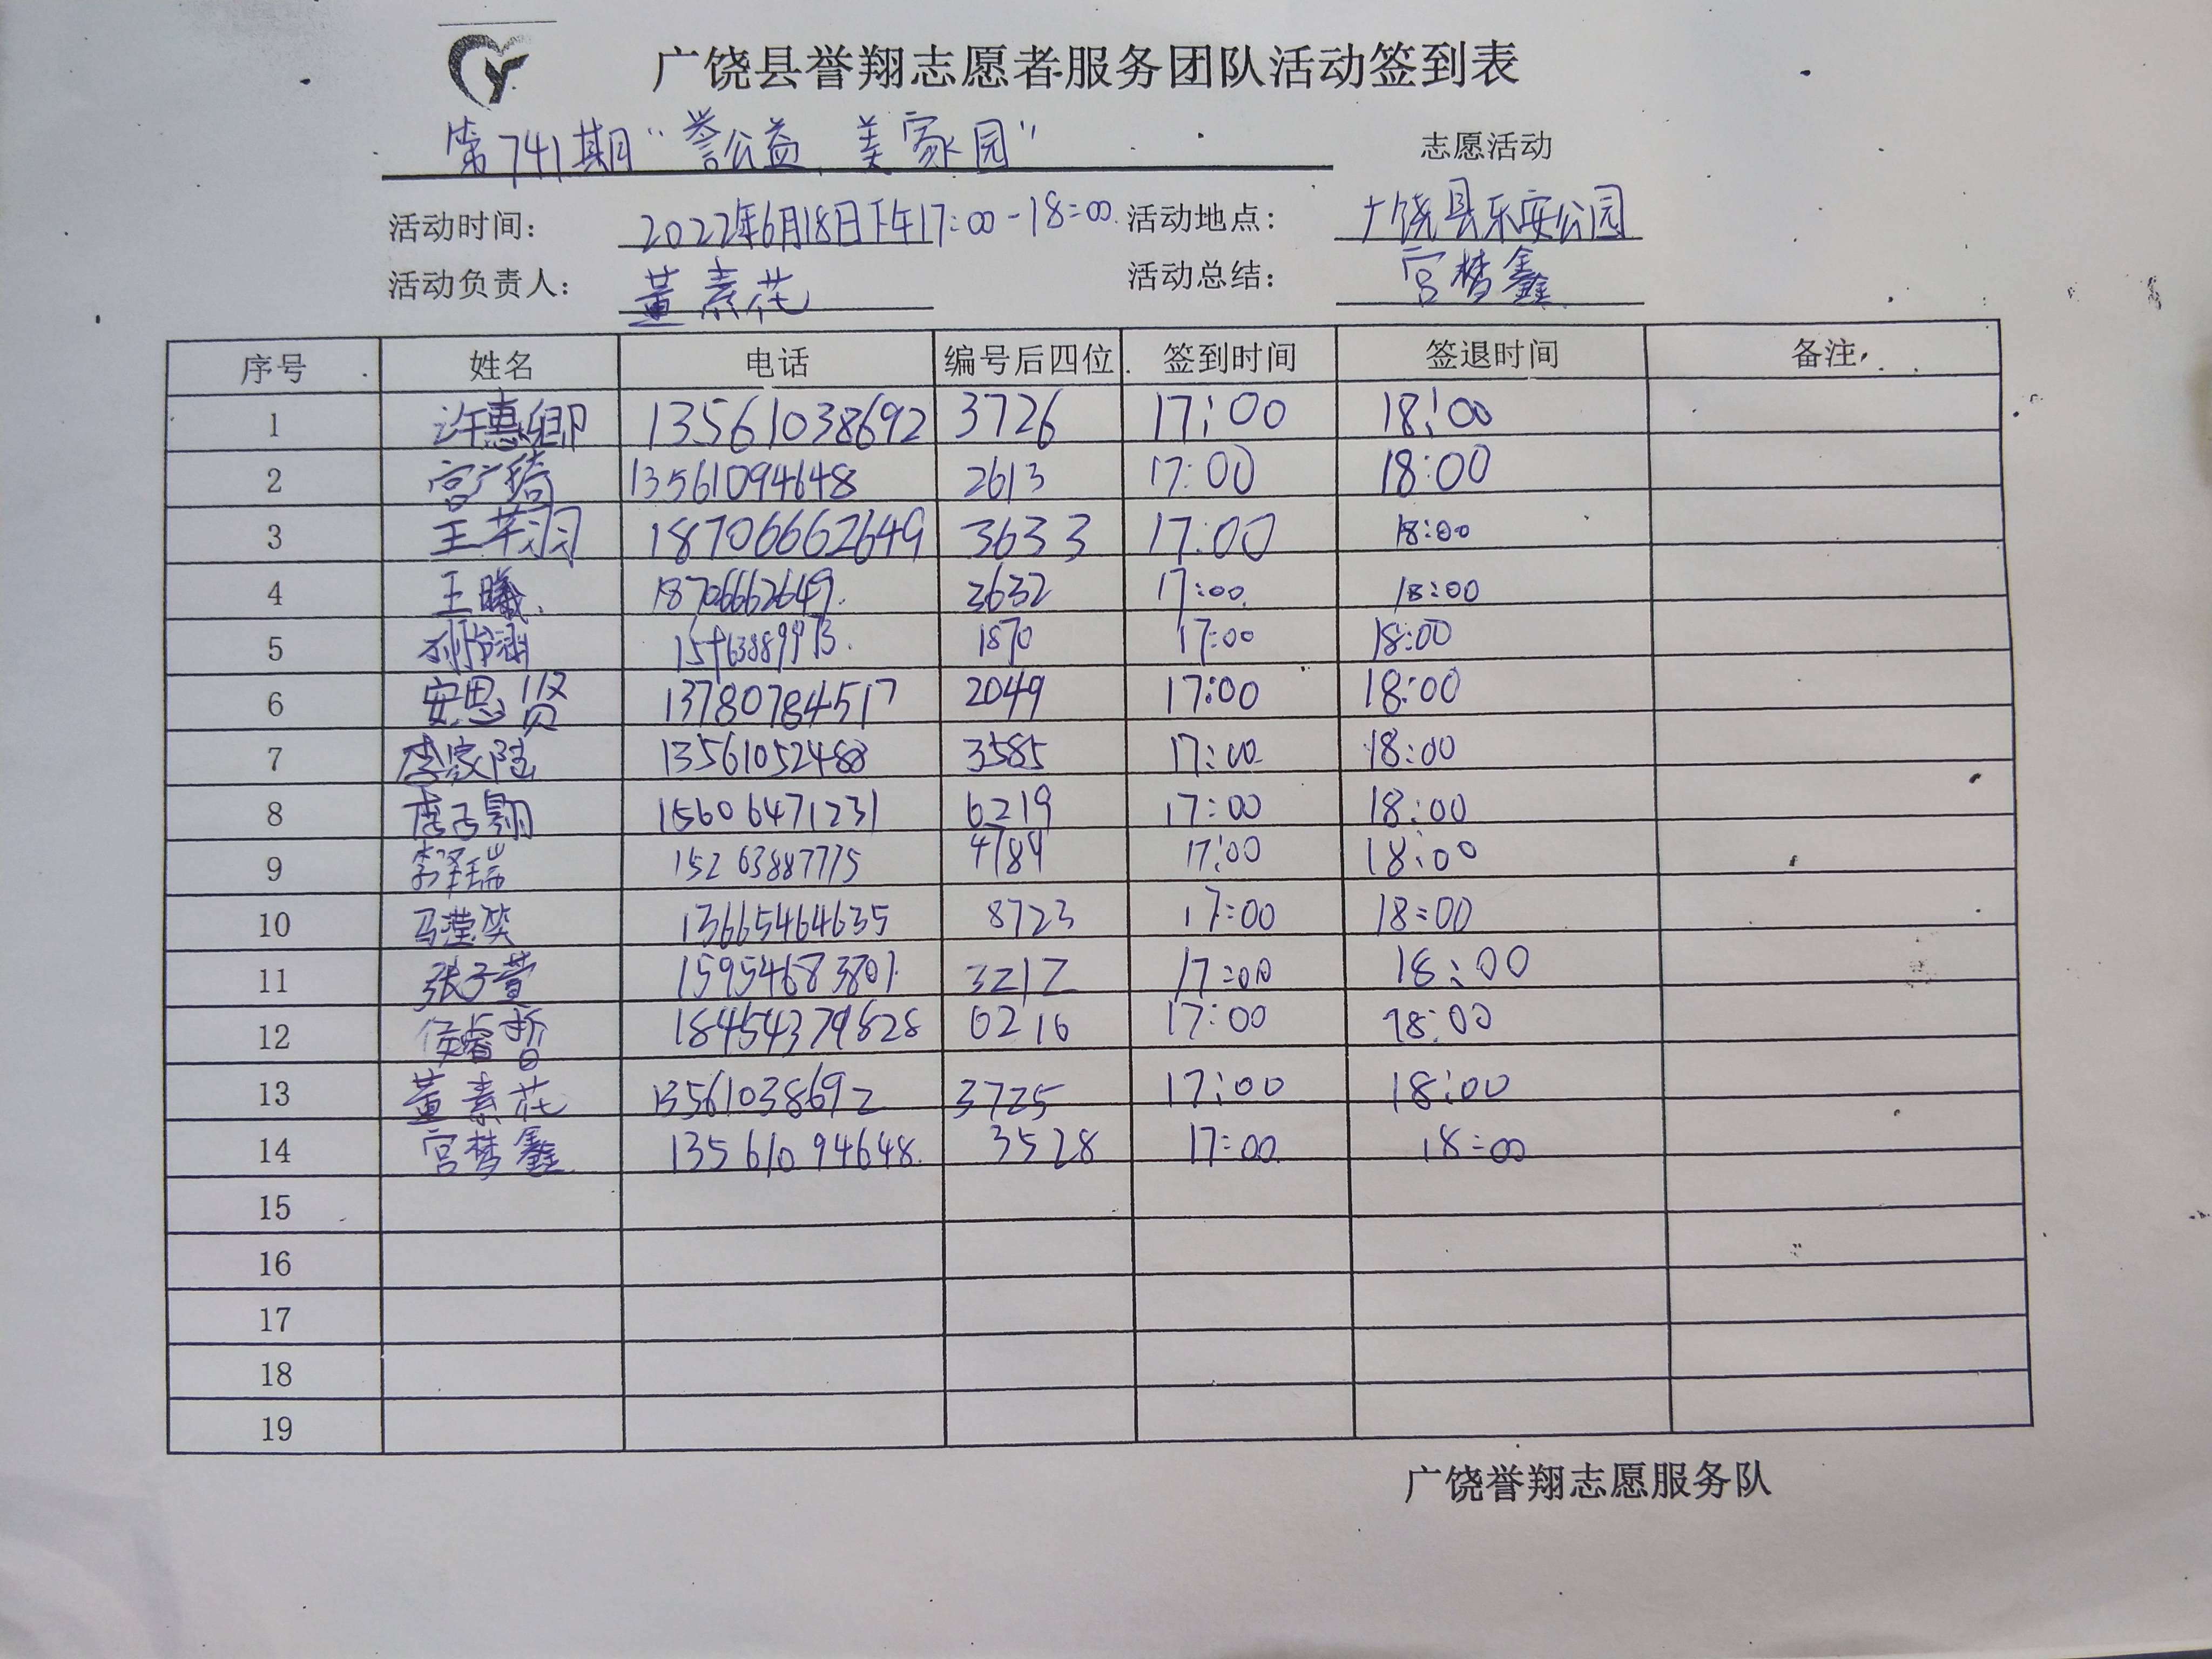 广饶县誉翔志愿者服务团队活动签到表
第741期“誉公益,美家园” 志愿活动
活动时间: 2022年6月18日下午17:00-18:00 活动地点: 广饶县乐安公园
活动负责人: 董素花 活动总结: 宫梦鑫
序号 姓名 电话 编号后四位 签到时间 签退时间 备注
1 许惠卿 13561038692 3726 17:00 18:00
2 宫广琦 13561094648 2613 17:00 18:00
3 王芊羽 18706662649 3633 17:00 18:00
4 王曦 18706662649 3632 17:00 18:00
5 孙怡涵 1870 17:00 18:00
6 安思贤 13780784517 2049 17:00 18:00
7 李家陆 13561052488 3585 17:00 18:00
8 15606471231 6219 17:00 18:00
9 李泽瑞 15263887775 4789 17:00 18:00
10 马滢笑 13665464635 8723 17:00 18:00
11 张子萱 15954683801 3217 17:00 18:00
12 侯睿哲 18454379828 6216 17:00 18:00
13 董素花 13561038692 3725 17:00 18:00
14 宫梦鑫 13561094648 3528 17:00 18:00
15
16
17
18
19
广饶誉翔志愿服务队